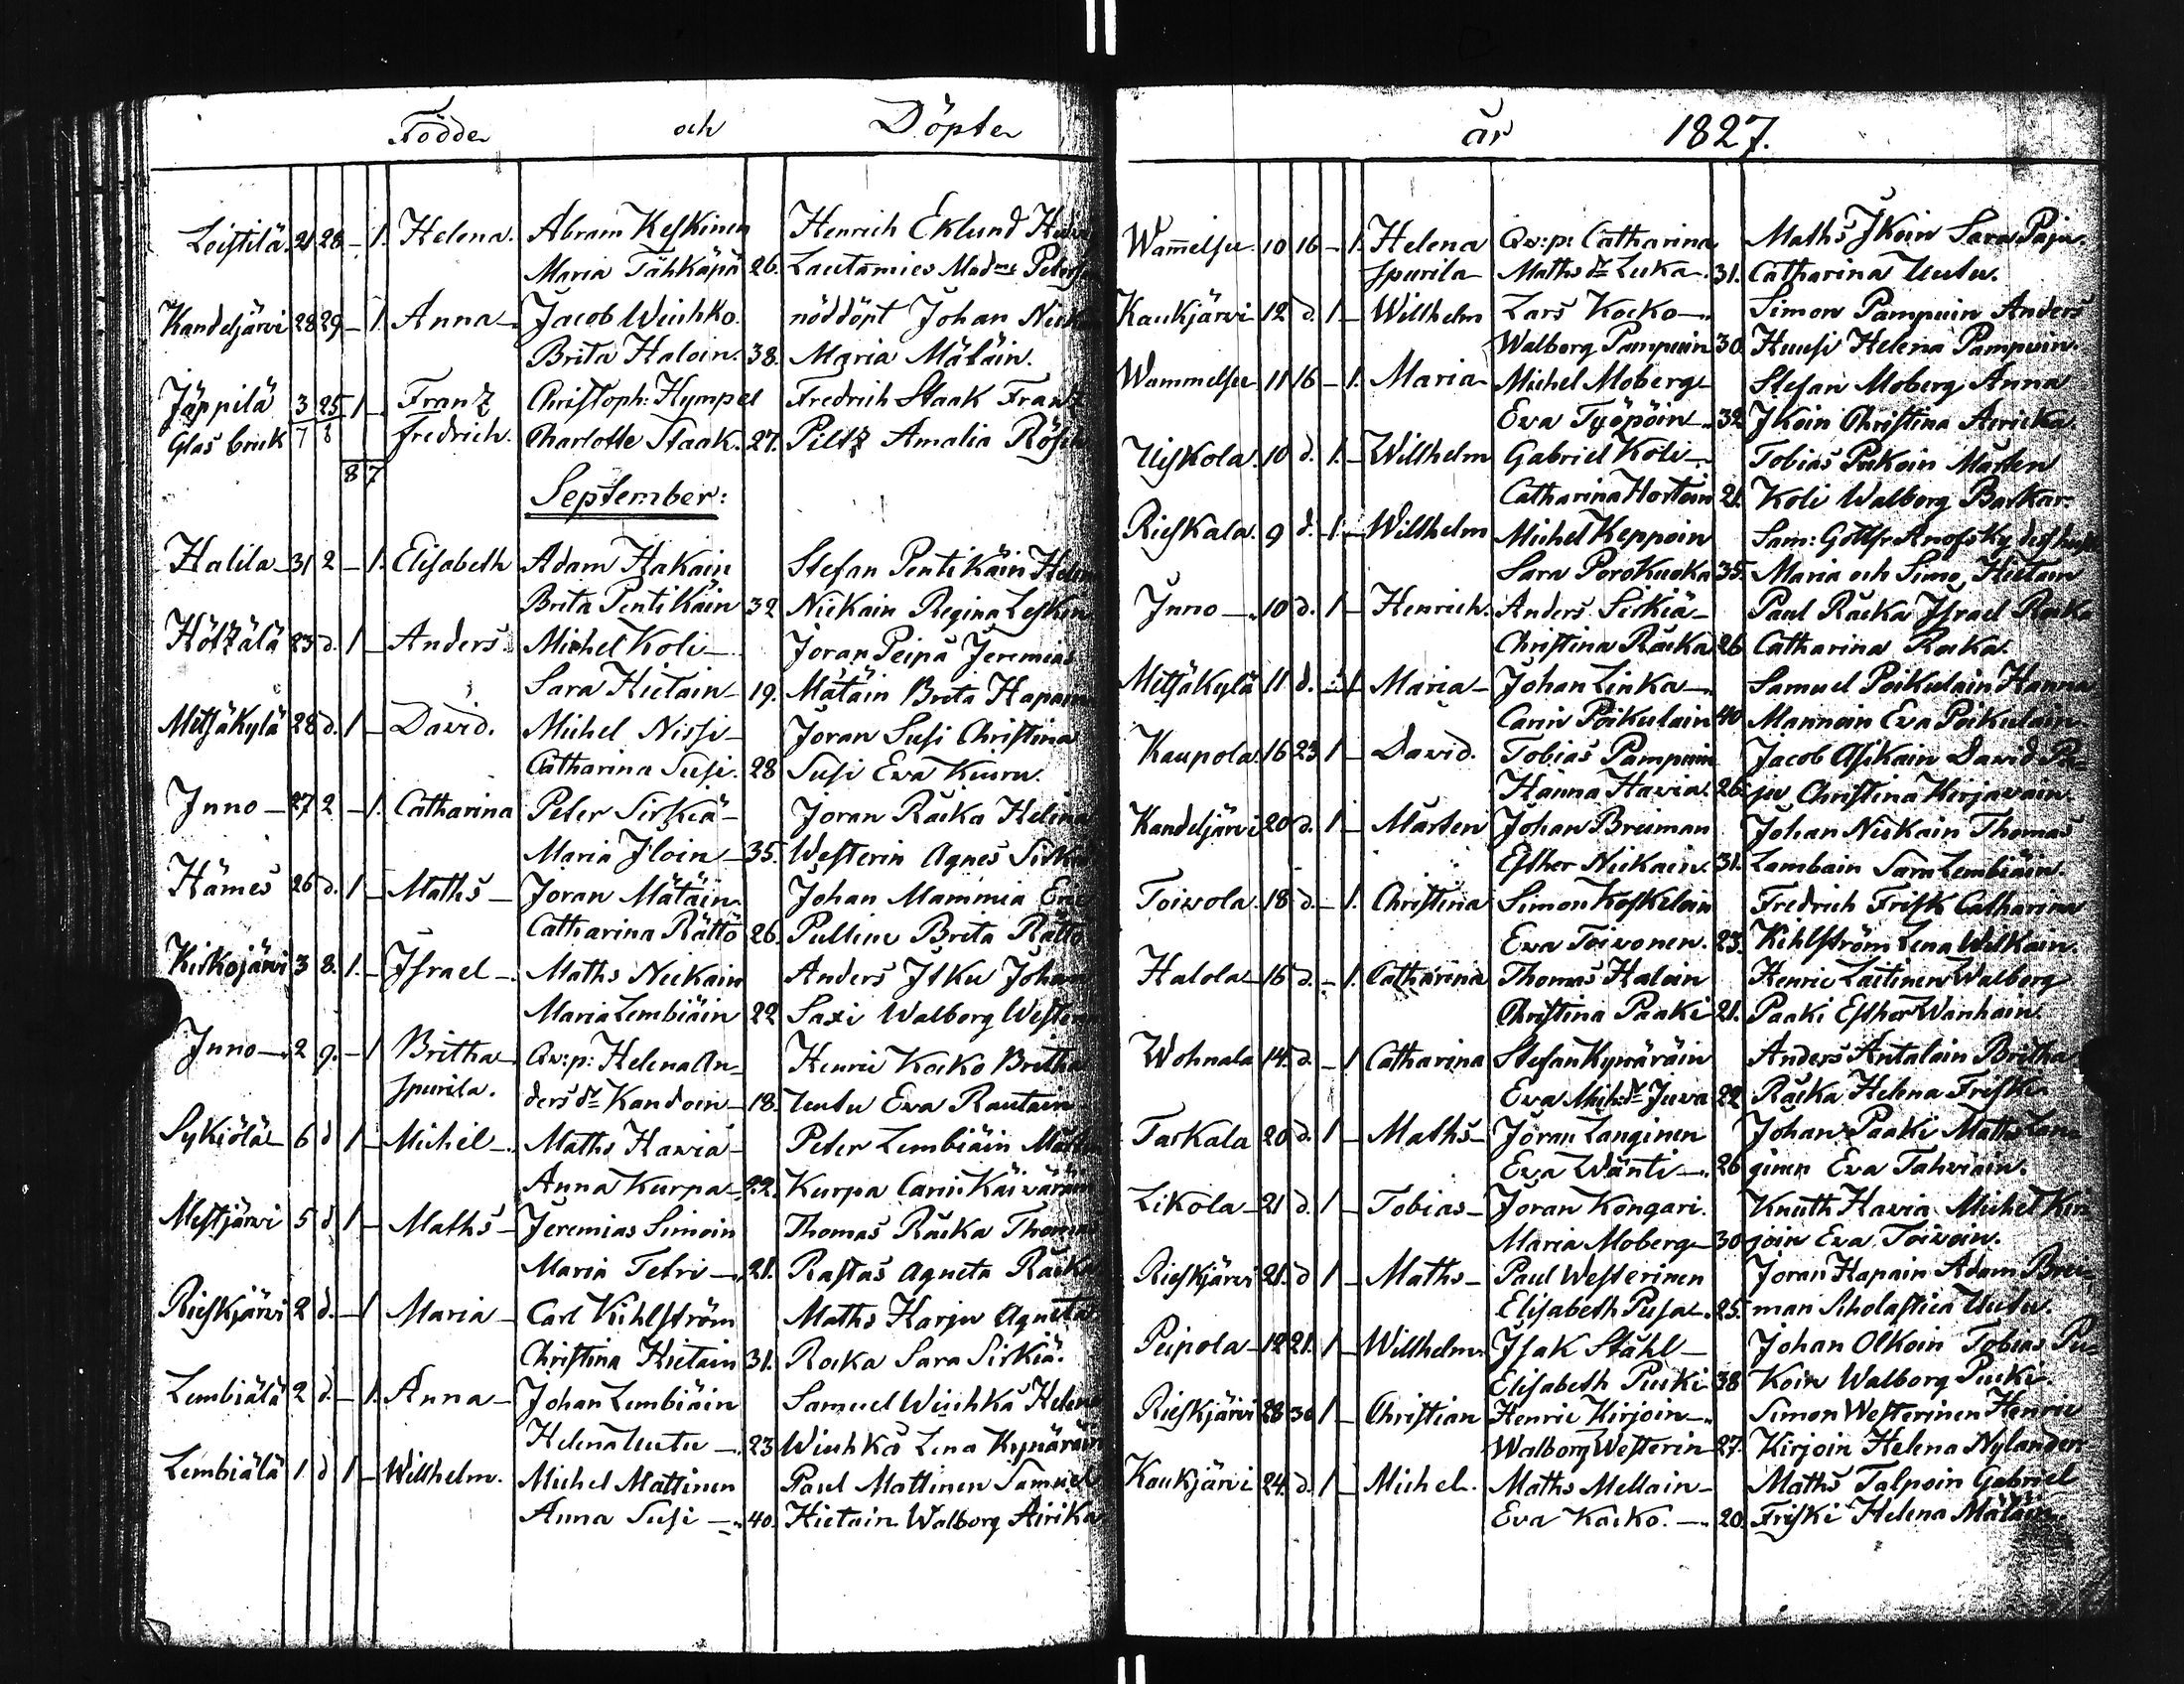 Födde och Döpte
Loistilä 21 28 - 1. Helena. Abram Keskinen Henrich Eklund
Maria Tähkäpä 26. Lautamies Mad:me
Kandeljärvi 28 29 - 1. Anna - Jacob Wiuhko. nöddöpt Johan
Brita Haloin. 38. Maria Mätäin.
Jäppilä 3 25 1 - Franz Christoph: Hympel Fredrich Staak Frantz
Glas bruk 7 8 fredrich. Charlotte Staak. 27. Piltz Amalia
8 7
September:
Halila 31 2 - 1. Elisabeth Adam Hakain Stefan Pentikäin
Brita Pentikäin 32 Niekain Regina
Hötzälä 23 d. 1 - Anders Michel Koli - Joran Peipa Jeremias
Sara Hietain - 19. Mätäin Brita
Metsäkylä 28 d. 1 - David. Michel Nissi - Joran Susi Christina
Catharina Susi. 28 Susi Eva Kuuru.
Inno - 27 2 - 1. Catharina Peter Sirkiä - Joran Räika Helena
Maria Iloin - 35. Westerin Agnes
Hämes 26 d. 1 - Maths - Joran Mätäin. Johan Mammia
Catharina Rättö 26. Pulliu Brita Rättö
Kirkojärvi 3 8. 1. - Israel - Maths Niekain Anders Itku Johan
Maria Lembiäin 22 Saxi Walborg
Inno - 2 9. - 1 Britha Qv:p: Helena An- Henric Kocko Britha
spurila. ders dr Kandoin - 18. Uutu Eva Rautain
Sykiälä 6 d 1 - Michel - Maths Havia - Peter Lembiäin
Anna Kurpa - 22. Kurpa Carin Käiväräin
Mestjärvi 5 d 1 - Maths - Jeremias Simoin Thomas Räika Thomas
Maria Tetri - 21. Rastas Agneta Räika
Rieskjärvi 2 d. - 1 Maria - Carl Kihlström Maths Harju Agneta
Christina Hietain 31. Roika Sara Sirkiä.
Lembiälä 2 d. - 1. Anna - Johan Lembiäin Samuel Wiuhka Helena
Helena Uutu - 23 Wiuhka Lena Kynäräin
Lembiälä 1. d 1 - Willhelm. Michel Mattinen Paul Mattinen Samuel
Anna Susi - 40. Hietain Walborg Airika.
år 1827.
Wam̄elsu. 10 16 - 1. Helena Qv:p: Catharina Maths Ikoin Sara Paju.
spurila Maths dr Luka 31. Catharina Uutu.
Kaukjärvi 12 d. 1 - Willhelm Lars Kocko - Simon Pampuin Anders
Walborg Pampuin 30. Huusi Helena Pampuin.
Wammelsu 11 16 - 1. Maria Michel Moberg Stefan Moberg Anna
Eva Työpöin - 32 Ikoin Christina Airicka
Uiskola. 10 d. 1. - Willhelm Gabriel Koli - Tobias Pukoin Mårten
Catharina Hortoin 21. Koli Walborg Barkar.
Rieskala. 9 d. 1. - Willhelm Michel Keppoin Sam: Gottfr
Sara Porokuoka 35. Maria och Simo Hietain
Inno - 10 d. 1 - Henrich. Anders Sirkiä - Paul Räika Israel Roika
Christina Räika 26 Catharina Roika.
Metsäkylä 11 d. - 1 Maria - Johan Linka - Samuel Poikulain Hanna
Carin Poikulain 40 Mannoin Eva Poikulain
Kaupola. 16 23 1 - David. Tobias Pampuin Jacob Asikain David Pa-
Hanna Havia. 26. ju Christina Kirjavain.
Kandeljärvi 20 d. 1 - Mårten Johan Breiman Johan Niskain Thomas
Esther Niekain. 31. Lambain Sara Lembiäin.
Toivola. 18 d - 1. Christina Simon Koskeloin Fredrich Frisk Catharina
Eva Toivonen. 23. Kihlström Lena Wilkain.
Halola 16 d. - 1. Catharina Thomas Haloin Henric Laitinen Walborg
Christina Paaki 21. Paaki Esther Wanhain.
Wohnala 14. d. - 1. Catharina Stefan Kynäräin Anders Antaloin Britha
Eva Mich: dr Juva 22 Räika Helena Friski
Tarkala 20 d. 1 - Maths - Joran Langinen Johan Paaki Maths Lan-
Eva Wänti - 26 ginen Eva Tahvain.
Likola 21 d. 1 - Tobias - Joran Kongari. Knuth Havia Michel Kir-
Maria Moberg - 30 join Eva Toivoin.
Rieskjärvi 21. d 1 - Maths - Paul Westerinen Joran Hapain Adam Brei-
Elisabeth Pusa - 25. man Scholastica Uutu.
Peipola 12 21. 1 - Willhelm. Isak Ståhl - Johan Olkoin Tobias Pu-
Elisabeth Puski 38 koin Walborg Puski.
Rieskjärvi 28 30 1 - Christian Henric Kirjoin - Simon Westerinen Henric
Walborg Westerin 27. Kirjoin Helena Nylander
Kaukjärvi 24. d. 1 - Michel. Maths Mellain - Maths Talpoin Gabriel
Eva Kocko. - 20. Friski Helena Mätäin